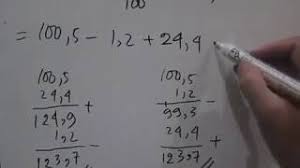 100
= 100,5 - 1,2 + 24,4
100,5
24,4 +
124,9
1,2 -
123,7
100,5
1,2 -
99,3
24,4 +
123,7